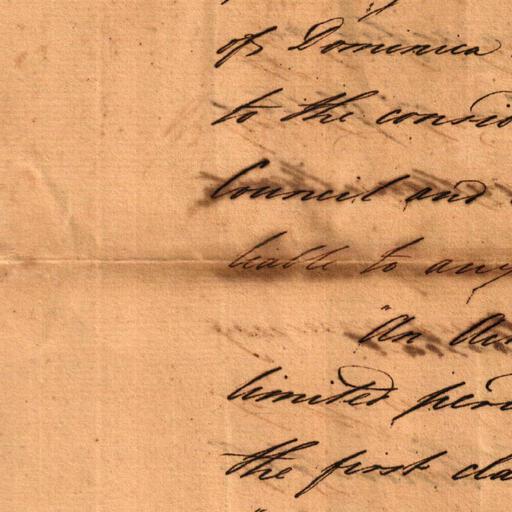 of Dominica
to the consid
Council and
liable to any
"An Act
limited peri
the first cla